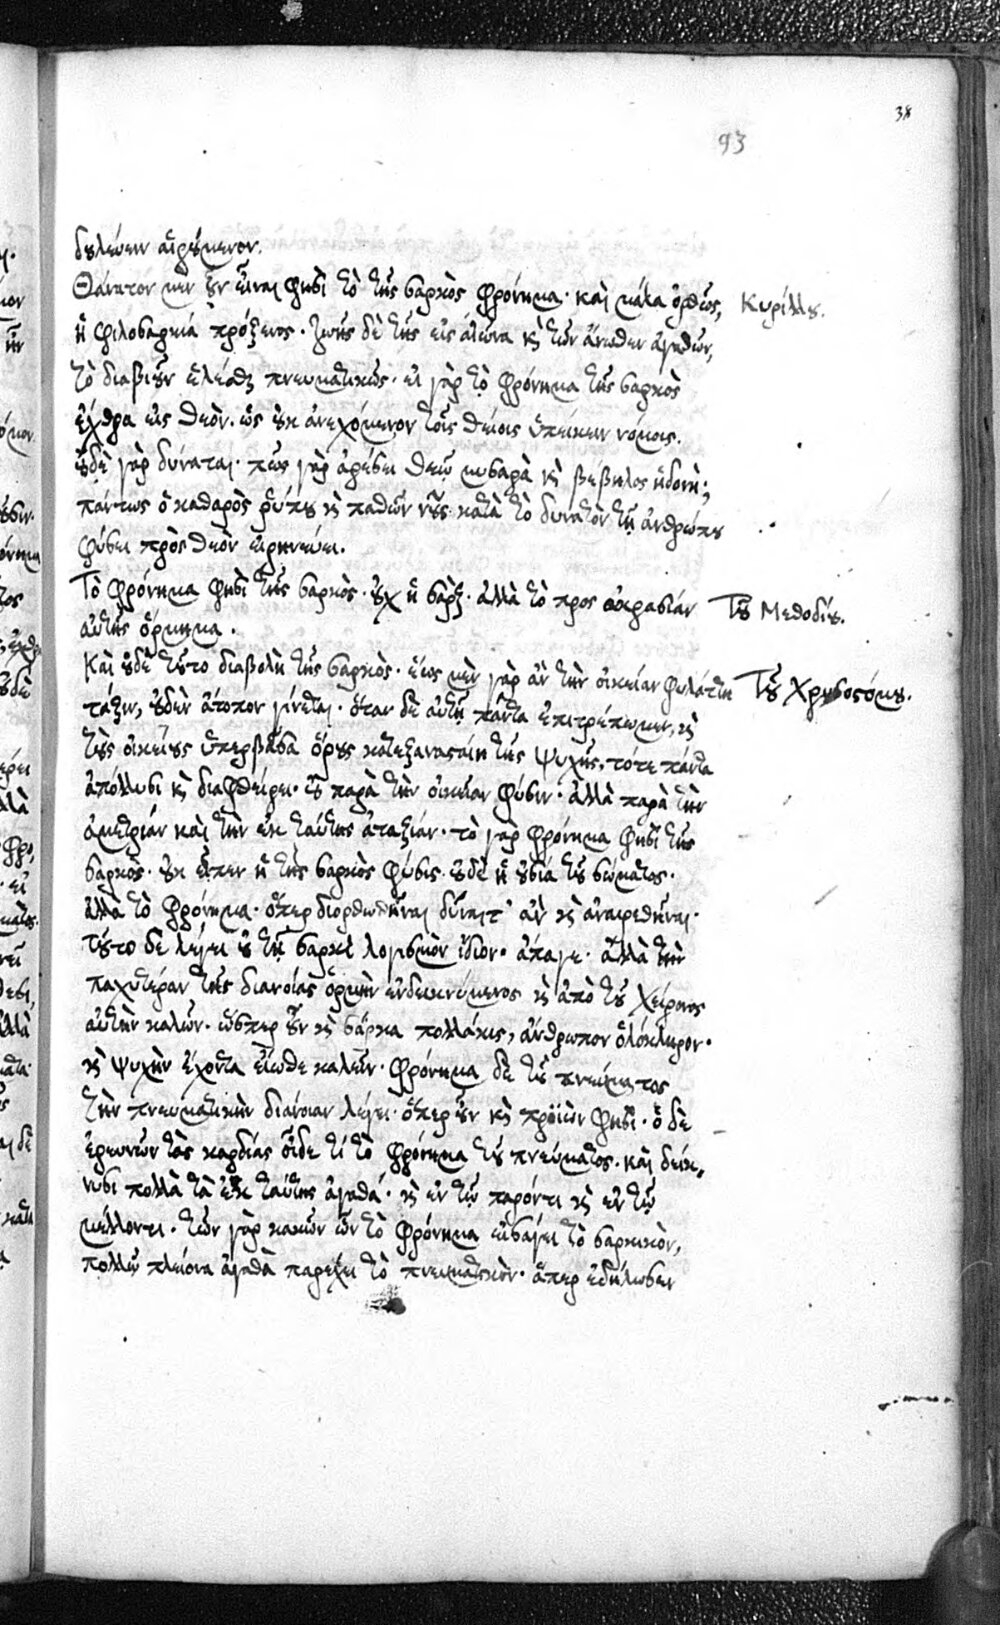 38
93
δουλεύειν αἱρούμενον.
Θάνατον μὲν οὖν εἶναι φησὶ τὸ τῆς σαρκὸς φρόνημα· καὶ μάλα ὀρθῶς, Κυρίλλου.
ἡ φιλοσαρκία πρόξενος· ζωῆς δὲ τῆς εἰς αἰῶνα καὶ τῶν ἄνωθεν ἀγαθῶν,
τὸ διαβιοῦν ἑλέσθαι πνευματικῶς· εἰ γὰρ τὸ φρόνημα τῆς σαρκὸς
ἔχθρα εἰς θεὸν· ὡς οὐκ ἀνεχόμενον τοῖς θείοις ὑπείκειν νόμοις.
οὐδὲ γὰρ δύναται· πῶς γὰρ ἀρέσει θεῷ μυσαρὰ καὶ βέβηλος ἡδονὴ;
πάντως ὁ καθαρὸς ῥύπου καὶ παθῶν νοῦς κατὰ τὸ δυνατὸν τῇ ἀνθρώπου
φύσει πρὸς θεὸν εἰρηνεύει.
Τὸ φρόνημα φησὶ τῆς σαρκὸς· οὐχ ἡ σὰρξ· ἀλλὰ τὸ προς ἀκρασίαν Τοῦ Μεθοδίου.
αὐτῆς ὅρμημα.
Καὶ οὐδὲ τοῦτο διαβολὴ τῆς σαρκὸς· ἕως μὲν γὰρ ἂν τὴν οἰκείαν φυλάττῃ Τοῦ Χρυσοστόμου.
τάξιν, οὐδὲν ἄτοπον γίνεται· ὅταν δὲ αὐτῇ πάντα ἐπιτρέπωμεν, καὶ
τοὺς οἰκείους ὑπερβᾶσα ὅρους κατεξανασταίη τῆς ψυχῆς, τότε πάντα
ἀπόλλυσι καὶ διαφθείρει· οὐ παρὰ τὴν οἰκείαν φύσιν· ἀλλὰ παρὰ τὴν
ἀμετρίαν καὶ τὴν ἐκ ταύτης ἀταξίαν· τὸ γὰρ φρόνημα φησὶ τῆς
σαρκὸς· οὐκ εἶπεν ἡ τῆς σαρκὸς φύσις· οὐδὲ ἡ οὐσία τοῦ σώματος·
ἀλλὰ τὸ φρόνημα· ὅπερ διορθωθῆναι δύναιτ' ἂν καὶ ἀναιρεθῆναι·
τοῦτο δὲ λέγει οὐ τῇ σαρκὶ λογισμὸν ἴδιον· ἄπαγε· ἀλλὰ τὴν
παχυτέραν τῆς διανοίας ὁρμὴν ἐνδεικνύμενος καὶ ἀπὸ τοῦ χείρονος
αὐτὴν καλῶν· ὥσπερ οὖν καὶ σάρκα πολλάκις, ἄνθρωπον ὁλόκληρον·
καὶ ψυχὴν ἔχοντα εἴωθε καλεῖν· φρόνημα δὲ τοῦ πνεύματος
τὴν πνευματικὴν διάνοιαν λέγει· ὅπερ οὖν καὶ προϊὼν φησὶ· ὁ δὲ
ἐρευνῶν τὰς καρδίας οἶδε τί τὸ φρόνημα τοῦ πνεύματος· καὶ δείκ-
νυσι πολλὰ τὰ ἐκ ταύτης ἀγαθά· καὶ ἐν τῷ παρόντι καὶ ἐν τῷ
μέλλοντι· τῶν γὰρ κακῶν ὧν τὸ φρόνημα εἰσάγει τὸ σαρκικὸν,
πολλῷ πλείονα ἀγαθὰ παρέχει τὸ πνευματικὸν· ἅπερ ἐδήλωσεν